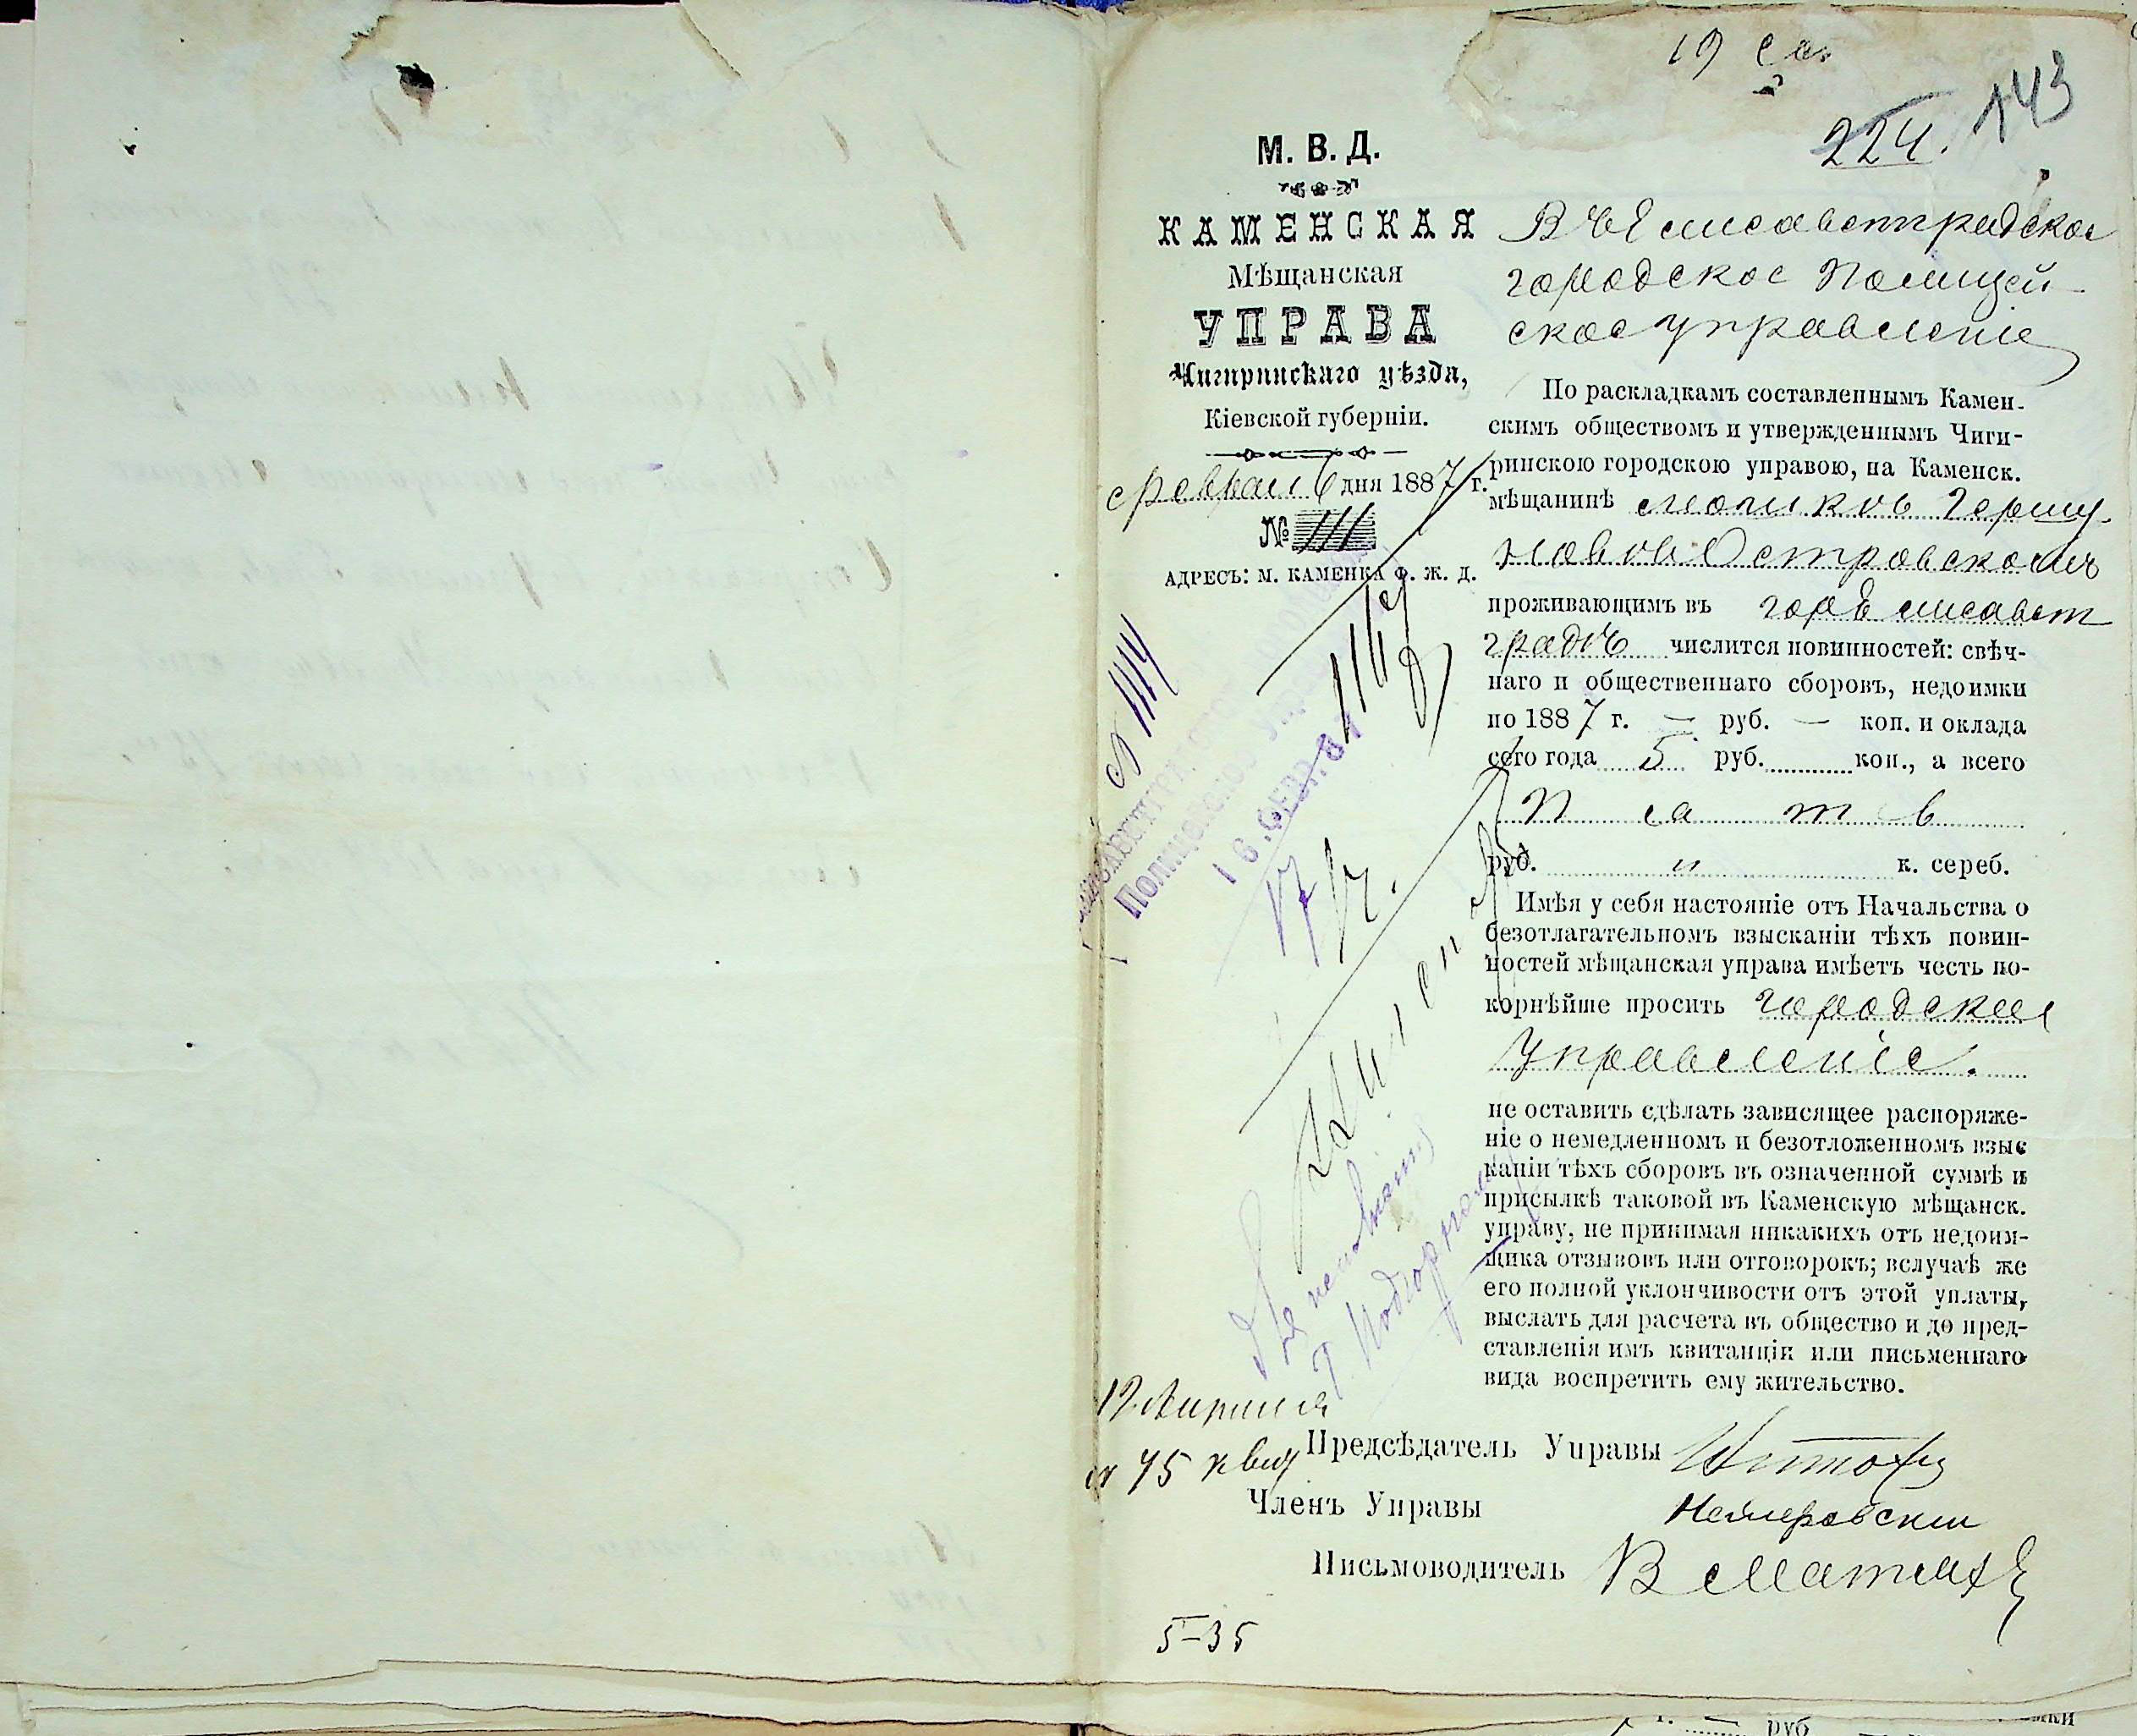 224. 143
М. В. Д.
КАМЕНСКАЯ
Мѣщанская
УПРАВА
Чигиринскаго уѣзда,
Кіевской губерніи.
Феврал 6 дня 1887 г.
№ 111
АДРЕСЪ: М. КАМЕНКА Ф. Ж. Д.
Въ Елисаветградское
городское Полицей-
ское управленіе
По раскладкамъ составленнымъ Камен-
скимъ обществомъ и утвержденнымъ Чиги-
ринскою городскою управою, на Каменск.
мѣщанинѣ
Островскомъ
проживающимъ въ гор Елисавет
градѣ числится повинностей: свѣч-
наго и общественнаго сборовъ, недоимки
по 1887 г. — руб. — коп. и оклада
сего года 5 руб. коп., а всего
Пять
руб. „ к. сереб.
Имѣя у себя настояніе отъ Начальства о
безотлагательномъ взысканіи тѣхъ повин-
ностей мѣщанская управа имѣетъ честь по-
корнѣйше просить городское
Управленіе.
не оставить сдѣлать зависящее распоряже-
ніе о немедленномъ и безотложенномъ взыс
каніи тѣхъ сборовъ въ означенной суммѣ и
присылкѣ таковой въ Каменскую мѣщанск.
управу, не принимая никакихъ отъ недоим-
щика отзывовъ или отговорокъ; вслучаѣ же
его полной уклончивости отъ этой уплаты,
выслать для расчета въ общество и до пред-
ставленія имъ квитанціи или письменнаго
вида воспретить ему жительство.
Полицейское Управ
16 ФЕВР. 87
19 Апреля
75 квит
Предсѣдатель Управы
Членъ Управы Немеровскии
Письмоводитель В
5-35
руб